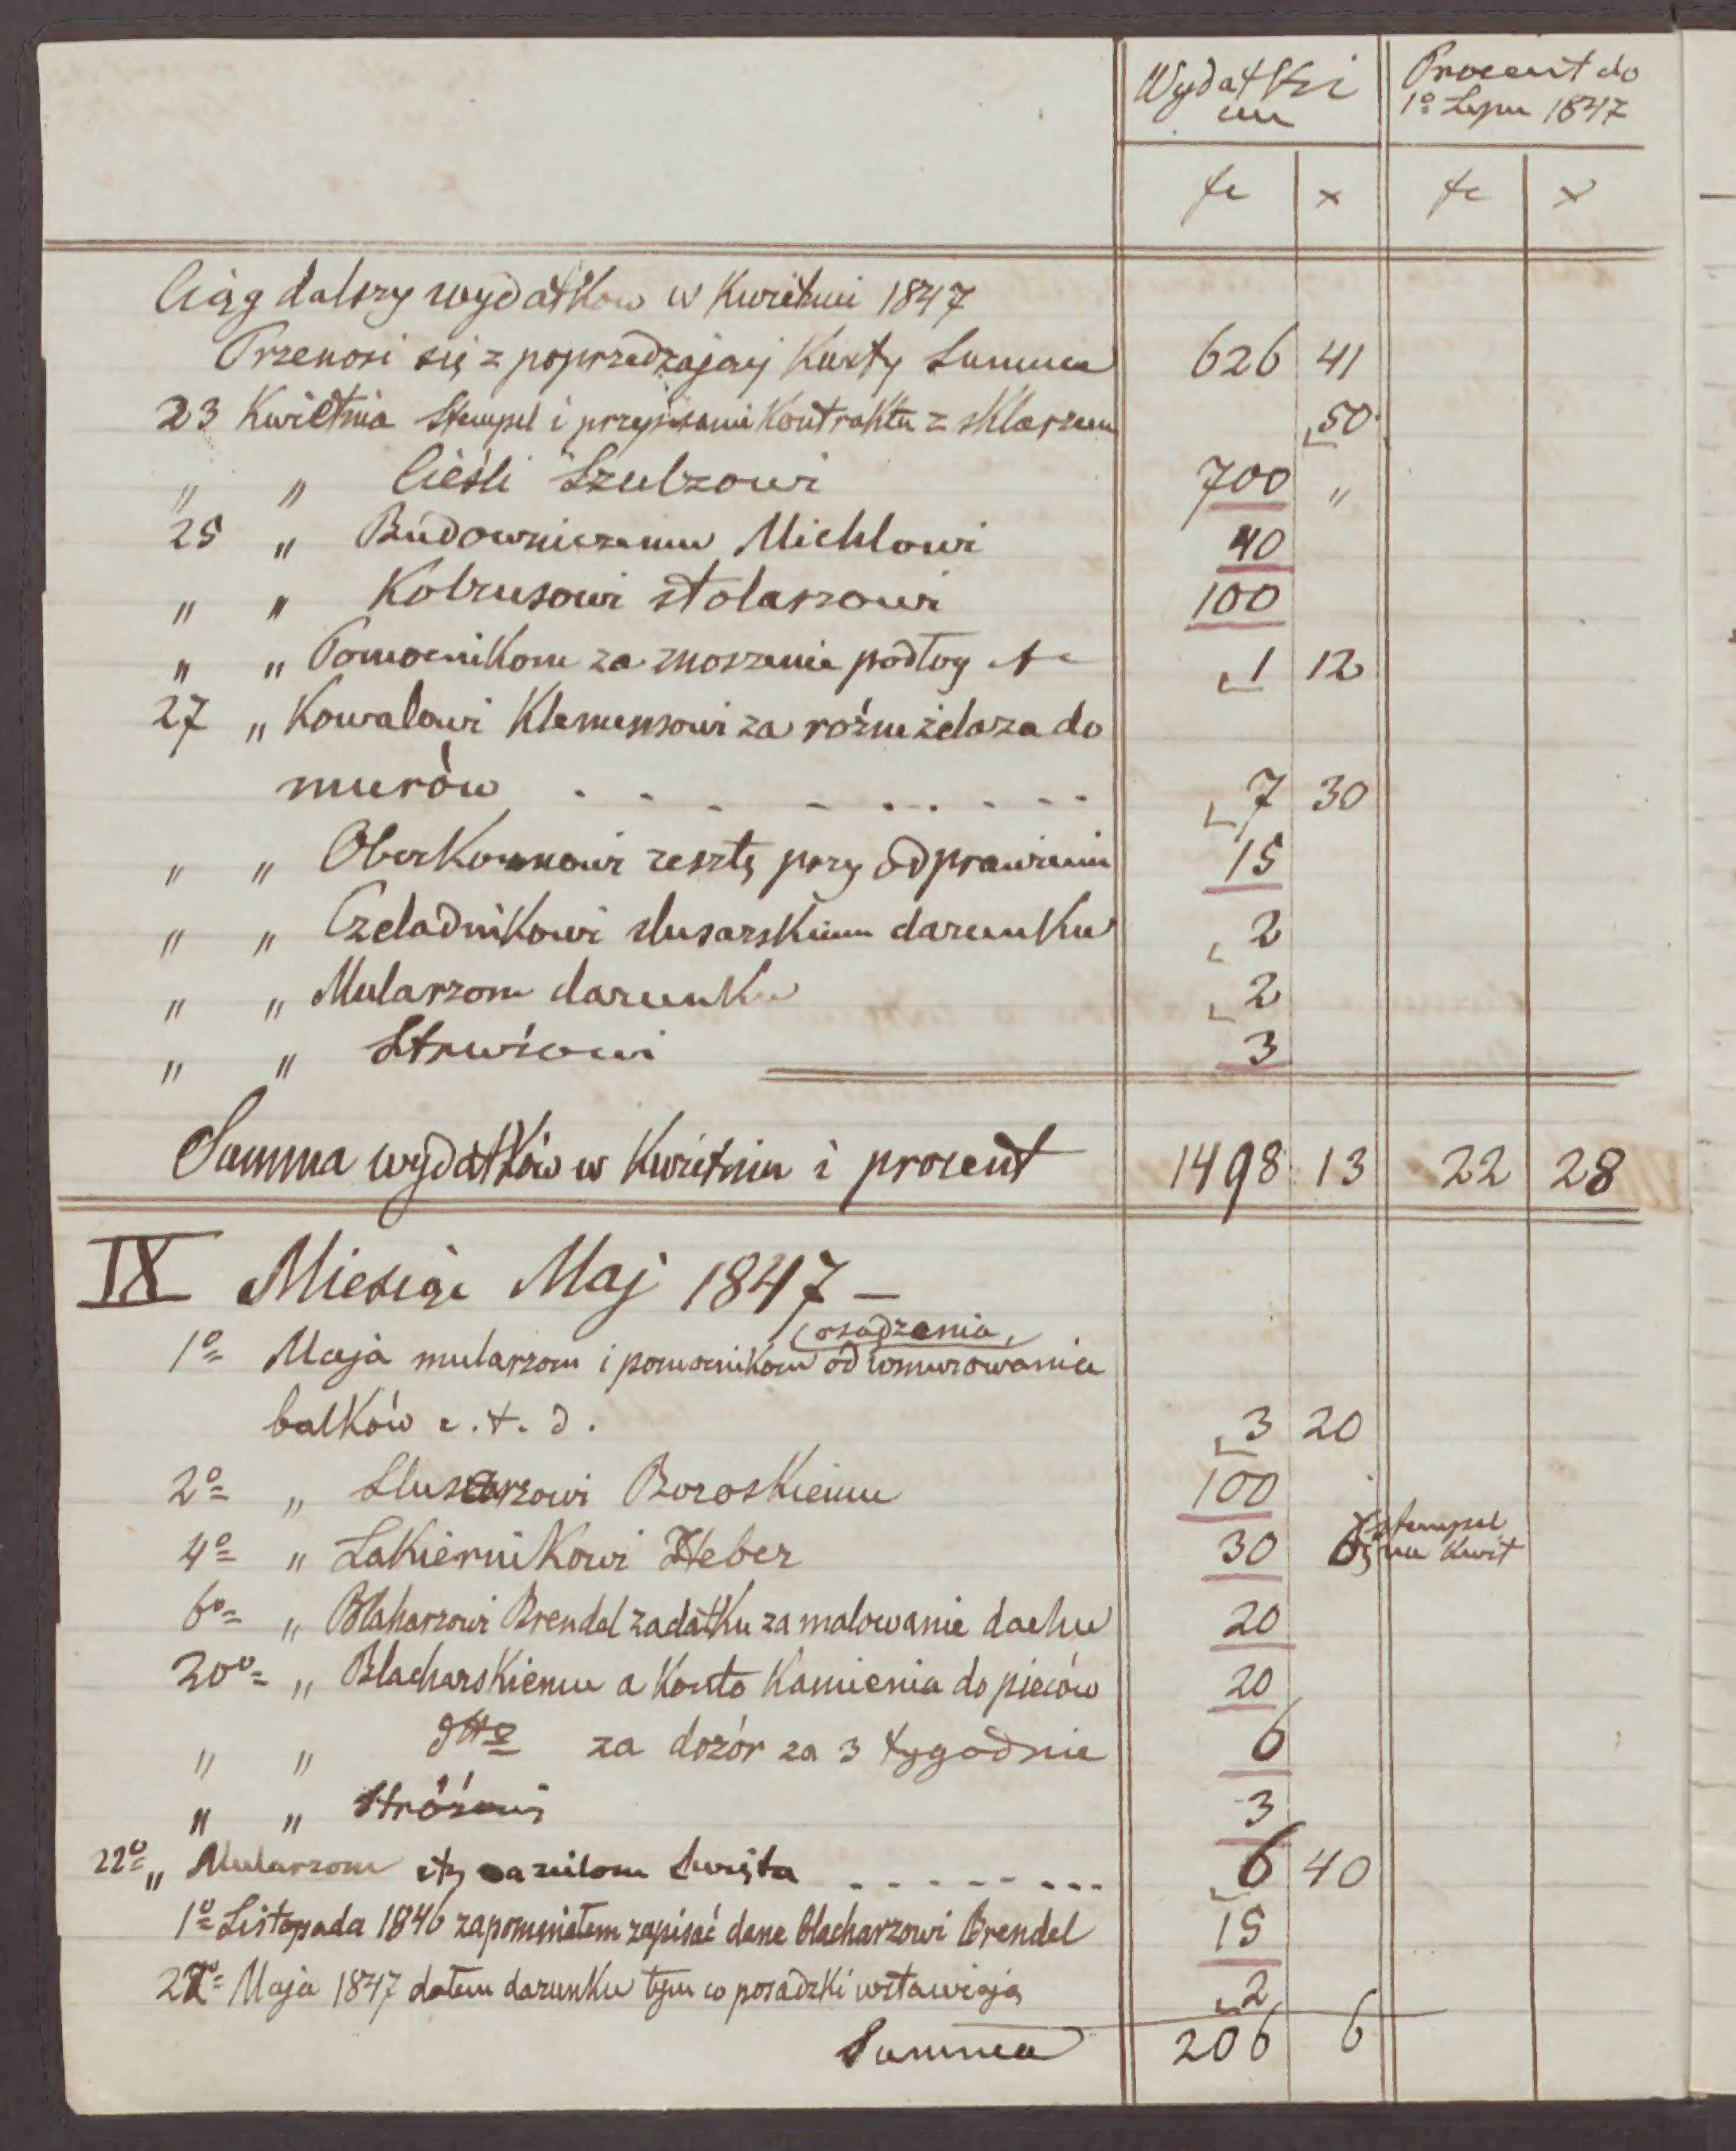 Wydatki
Procent do
1º Lipca 1847
fl x fl x
Ciąg dalszy wydatków w Kwietniu 1847
Przenosi się z poprzedzającej Karty Summa 626 41
23 Kwietnia Stempel i przepisanie Kontraktu z sklarzem 50
" " Cieśli Szulzowi 700 "
25 " Budowniczemu Michlowi 40
" " Kobrusowi stolarzowi 100
" " Pomocnikom za znoszenie podłog 1 12
27 " Kowalowi Klemensowi za rożne żelaza do
murów . . . . . . . . . 7 30
" " Oberkornowi resztę przy odprawieniu 15
" " Czeladnikowi slusarskiemu darunku 2
" " Mularzom darunku 2
" " Strużowi 3
Summa wydatków w Kwietniu i procent 1498 13 22 28
IX Miesiąc Maj 1847 —
osadzenia,
1º Maja mularzom i pomocnikom od wmurowania
balków i. t. d. 3 20
2º " Slusarzowi Boroskiemu 100
stempel
4º " Lakiernikowi Heber 30 6 na Kwit
6º " Blaharzowi Brendel zadatku za malowanie dachu 20
20º " Blacharskiemu a Konto Kamienia do pieców 20
" " dtto za dozór za 3 tygodnie 6
" " Stróżowi 3
22º " Mularzom Święta . . . . . . . . 6 40
1º Listopada 1846 zapomniałem zapisać dane Blacharzowi Brendel 15
22º Maja 1847 dałem darunku tym co posadzki wstawiają 2
Summa 206 6